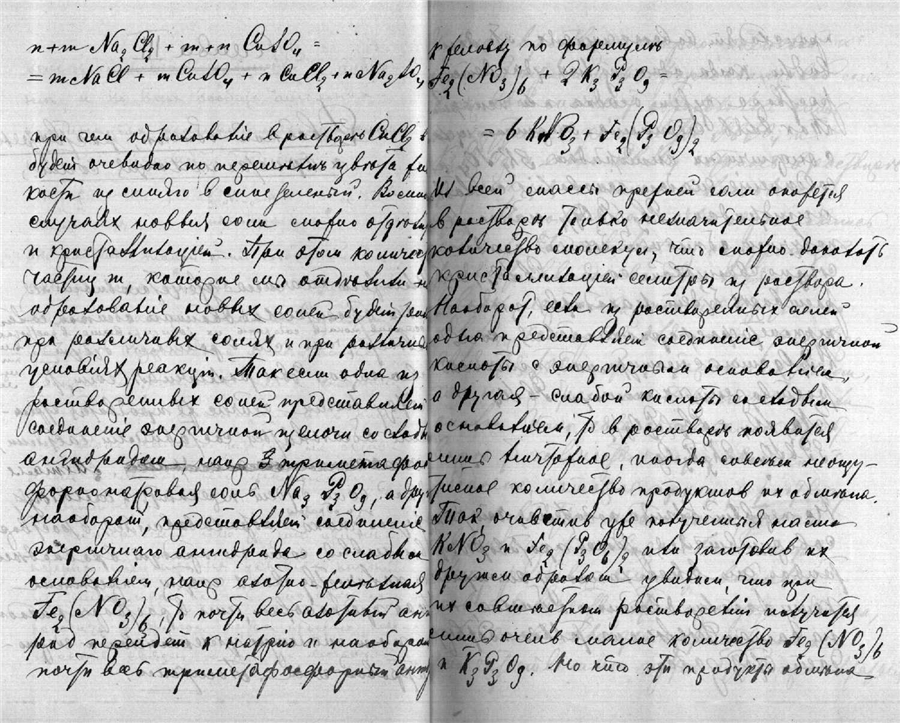 n+m Na₂Cl₂ + m+n CuSO₄ =
= mNaCl + m CuSO₄ + n CuCl₂ + n Na₂SO₄
при чем образованіе в растворѣ CuCl₂
будет очевидно по перемѣнѣ цвѣта
кости из синяго в синезеленый.
случаях новыя соли можно
и кристаллизацiей. При этом
частиц m, которые
образованіе новых солей будет
при различных солях и при
условіях реакціи. Так если одна из
растворенных солей представляет
соединеніе энергичной щелочи со
ангидридом, напр триметафос
форнонатровая соль Na₃P₃O₉, а
наоборот, представляет соединеніе
энергичнаго ангидрида со слабым
основаніем, напр азотно-желѣзная
Fe₂(NO₃)₆, то почти весь азотный
рид перейдет к натрію и наоборот
почти весь триметафосфорный
к желѣзу по формулѣ
Fe₂(NO₃)₆ + 2K₃P₃O₉ =
= 6KNO₃ + Fe₂(P₃O₉)₂
Из всей массы прежней соли окажется
в растворѣ только незначительное
количество молекул, что можно доказать
кристаллизацiей селитры из раствора.
Наоборот, если из растворенных солей
одна представляет соединеніе энергичной
кислоты с энергичным основаніем,
а другая - слабой кислоты со слабым
основаніем, то в растворѣ появятся
лишь ничтожное, иногда совсѣм неощу-
тимое количество продуктов их обмѣна.
Так, очистив уже полученныя нами
KNO₃ и Fe₂(P₃O₉)₂ или заготовив их
другим образом увидим, что при
их совмѣстном раствореніи получатся
лишь очень малое количество Fe₂(NO₃)₆
и K₃P₃O₉. Но эти продукты обмѣна